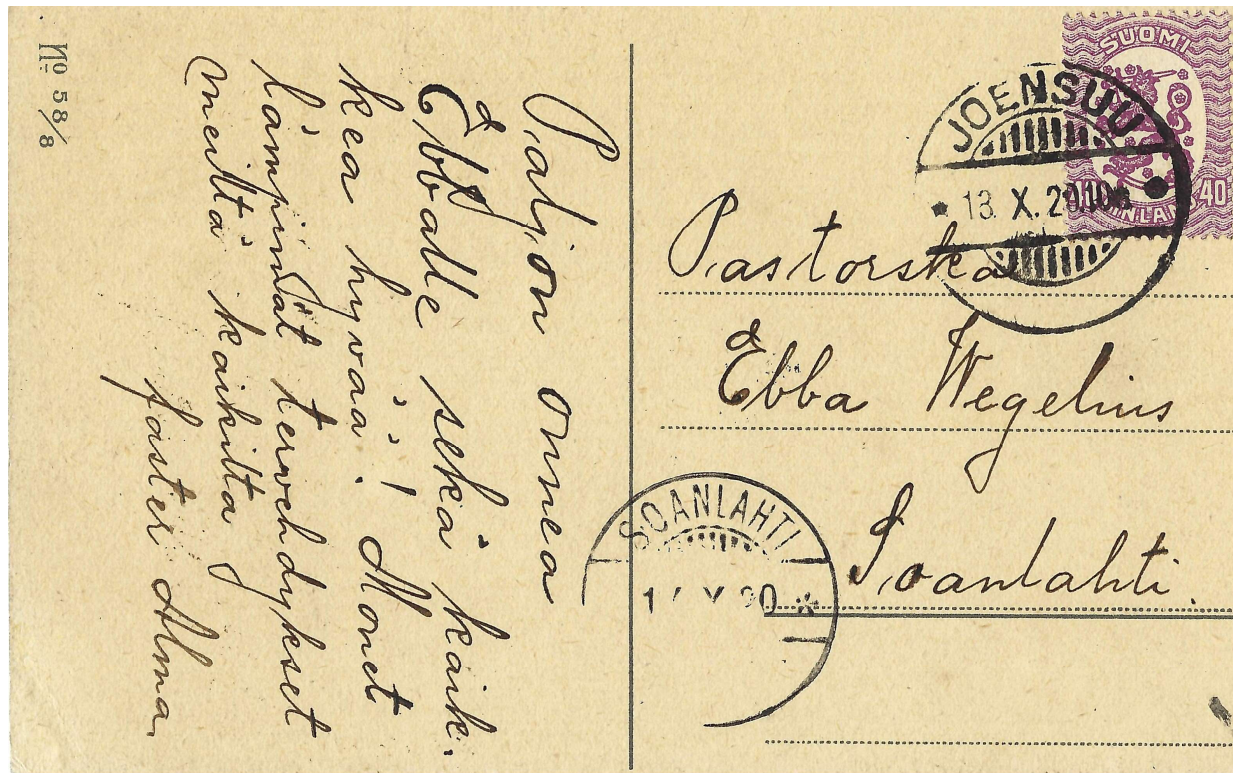 No 58/8
Paljon onnea
Ebballe sekä kaik-
kea hyvää! Monet
lämpimät tervehdykset
meiltä kaikilta
faster Alma
SUOMI
FINLAND 40
JOENSUU
13. X. 20
Pastorska
Ebba Wegelius
Soanlahti.
SOANLAHTI
X 20